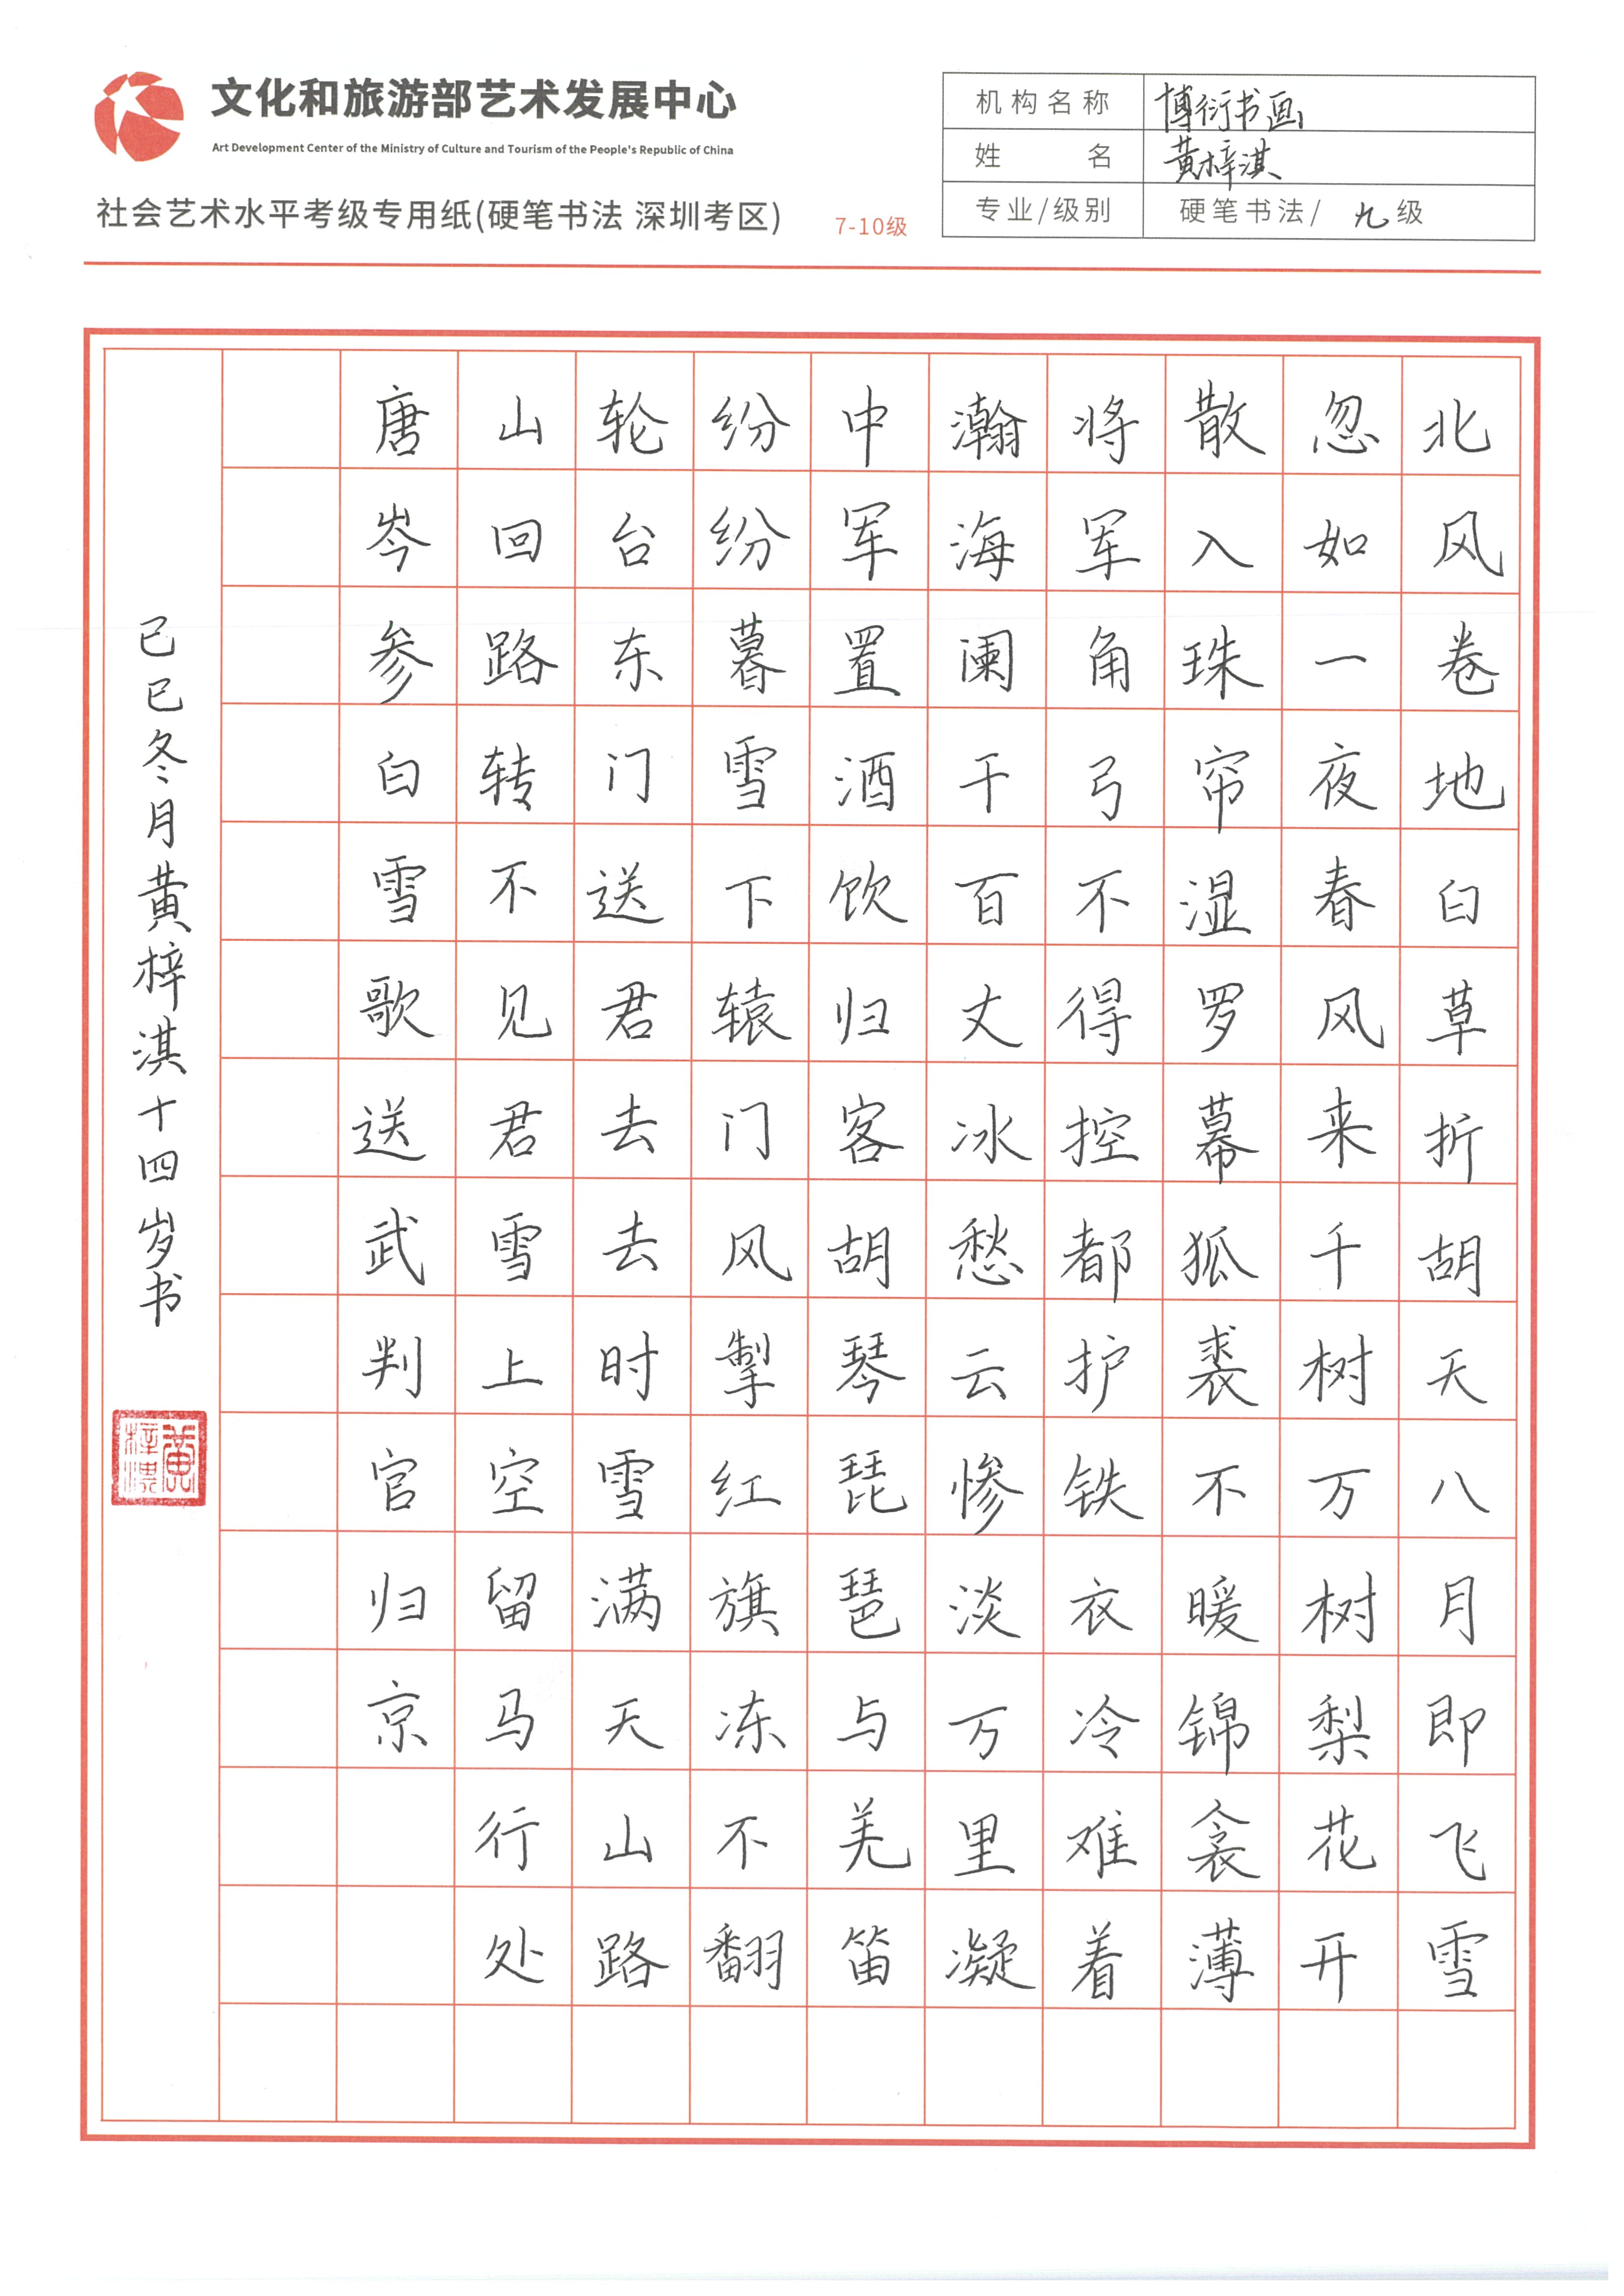 文化和旅游部艺术发展中心
Art Development Center of the Ministry of Culture and Tourism of the People's Republic of China
社会艺术水平考级专用纸(硬笔书法 深圳考区)
7-10级
机构名称 博衍书画
姓名 黄梓淇
专业/级别 硬笔书法/九级
北风卷地白草折胡天八月即飞雪
忽如一夜春风来千树万树梨花开
散入珠帘湿罗幕狐裘不暖锦衾薄
将军角弓不得控都护铁衣冷难着
瀚海阑干百丈冰愁云惨淡万里凝
中军置酒饮归客胡琴琵琶与羌笛
纷纷暮雪下辕门风掣红旗冻不翻
轮台东门送君去去时雪满天山路
山回路转不见君雪上空留马行处
唐岑参白雪歌送武判官归京
己巳冬月黄梓淇十四岁书
黄梓淇